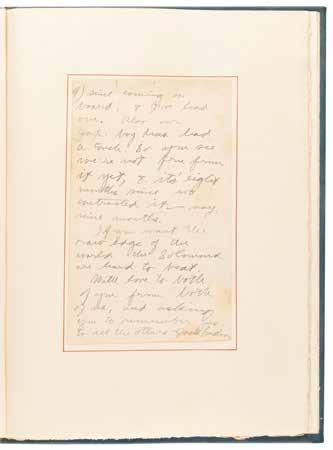 9) since coming on
board, & I've had
one. Also our
Jap. boy has had
a touch. So you see
we're not free from
it yet, & it's eight
months since we
contracted it — nay,
nine months.
If you want the
raw edge of the
world the Solomons
are hard to beat.
With love to both
of you from both
of us, and asking
you to remember us
to all the others Jack London